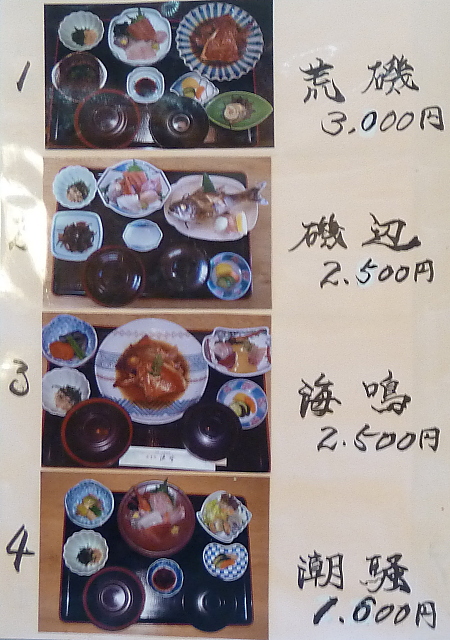 1
荒磯
3,000円
2
磯辺
2.500円
3
海鳴
2.500円
4
潮騒
1.600円